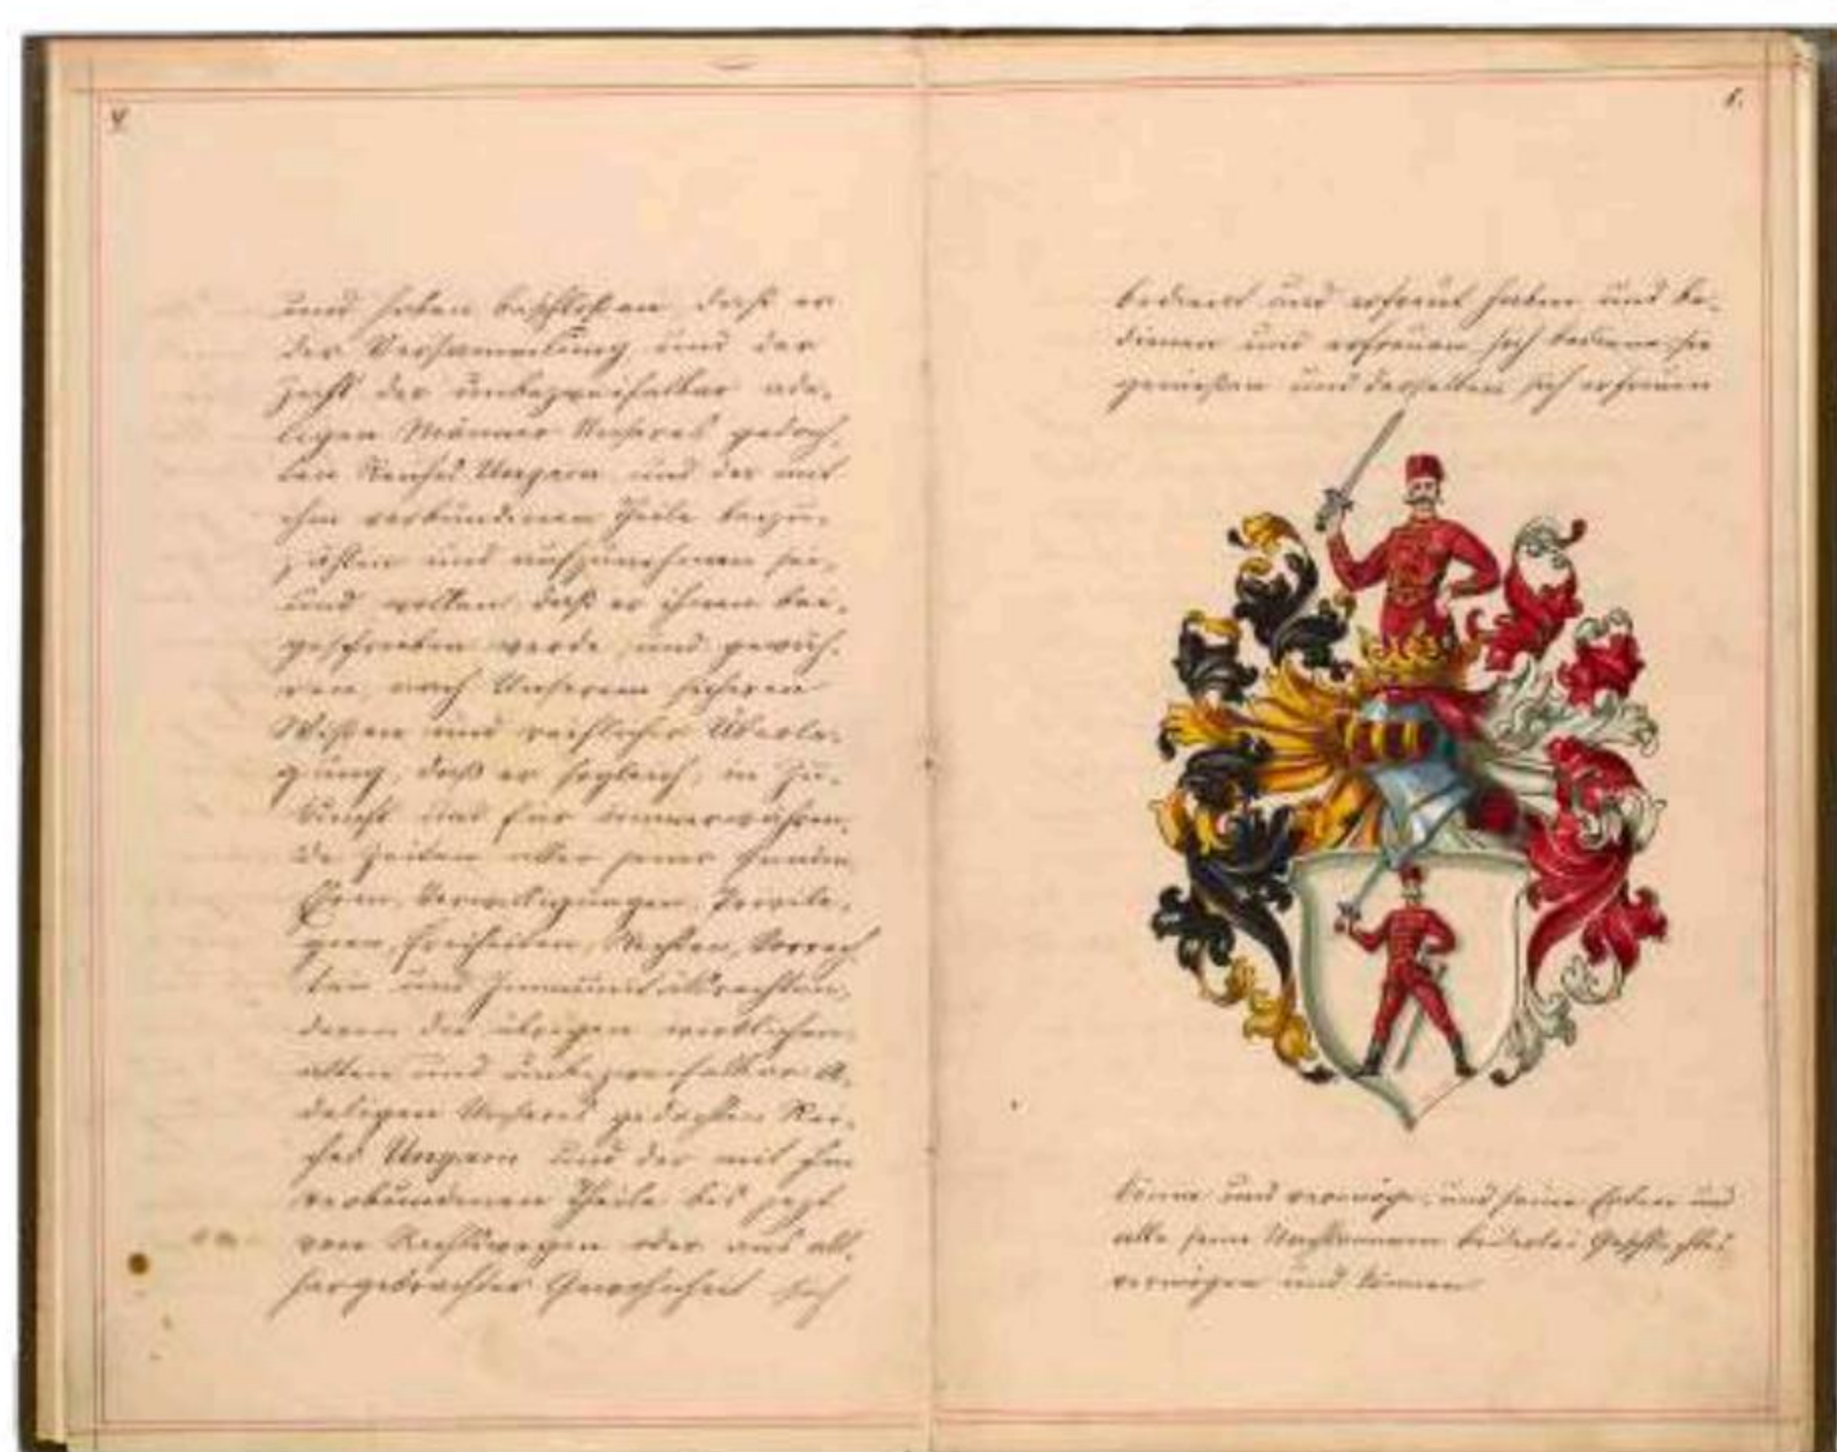 4
und haben beschloßen, daß er
der Versammlung und der
der unbezweifelbar ade-
ligen Männer Unseres gedach-
ten Reiches Ungarn und der mit
ihm verbundenen Theile beizu-
zählen und aufzunehmen sei,
und wollen, daß er ihnen bei-
geschrieben werde, und gewäh-
ren, nach Unserem sicheren
Wißen und reiflicher Überle-
gung, daß er sogleich, in Zu-
kunft und für immerwähren-
de Zeiten aller jener Gnaden
Ehren, Bewilligungen, Privile-
gien, Freiheiten, Rechten, Vorrech-
ten und
deren die übrigen wirklichen
alten und unbezweifelbaren A-
deligen Unseres gedachten Rei-
ches Ungarn und der mit ihm
verbundenen Theile bis jezt
von Rechtswegen oder aus alt-
hergebrachter Gewohnheit sich
5.
bedient und erfreut haben und be-
dienen und erfreuen sich bediene, sie
genießen und derselben sich erfreuen
könne und vermöge, und seine Erben und
alle seine Nachkommen beiderlei Geschlechtes
vermögen und können